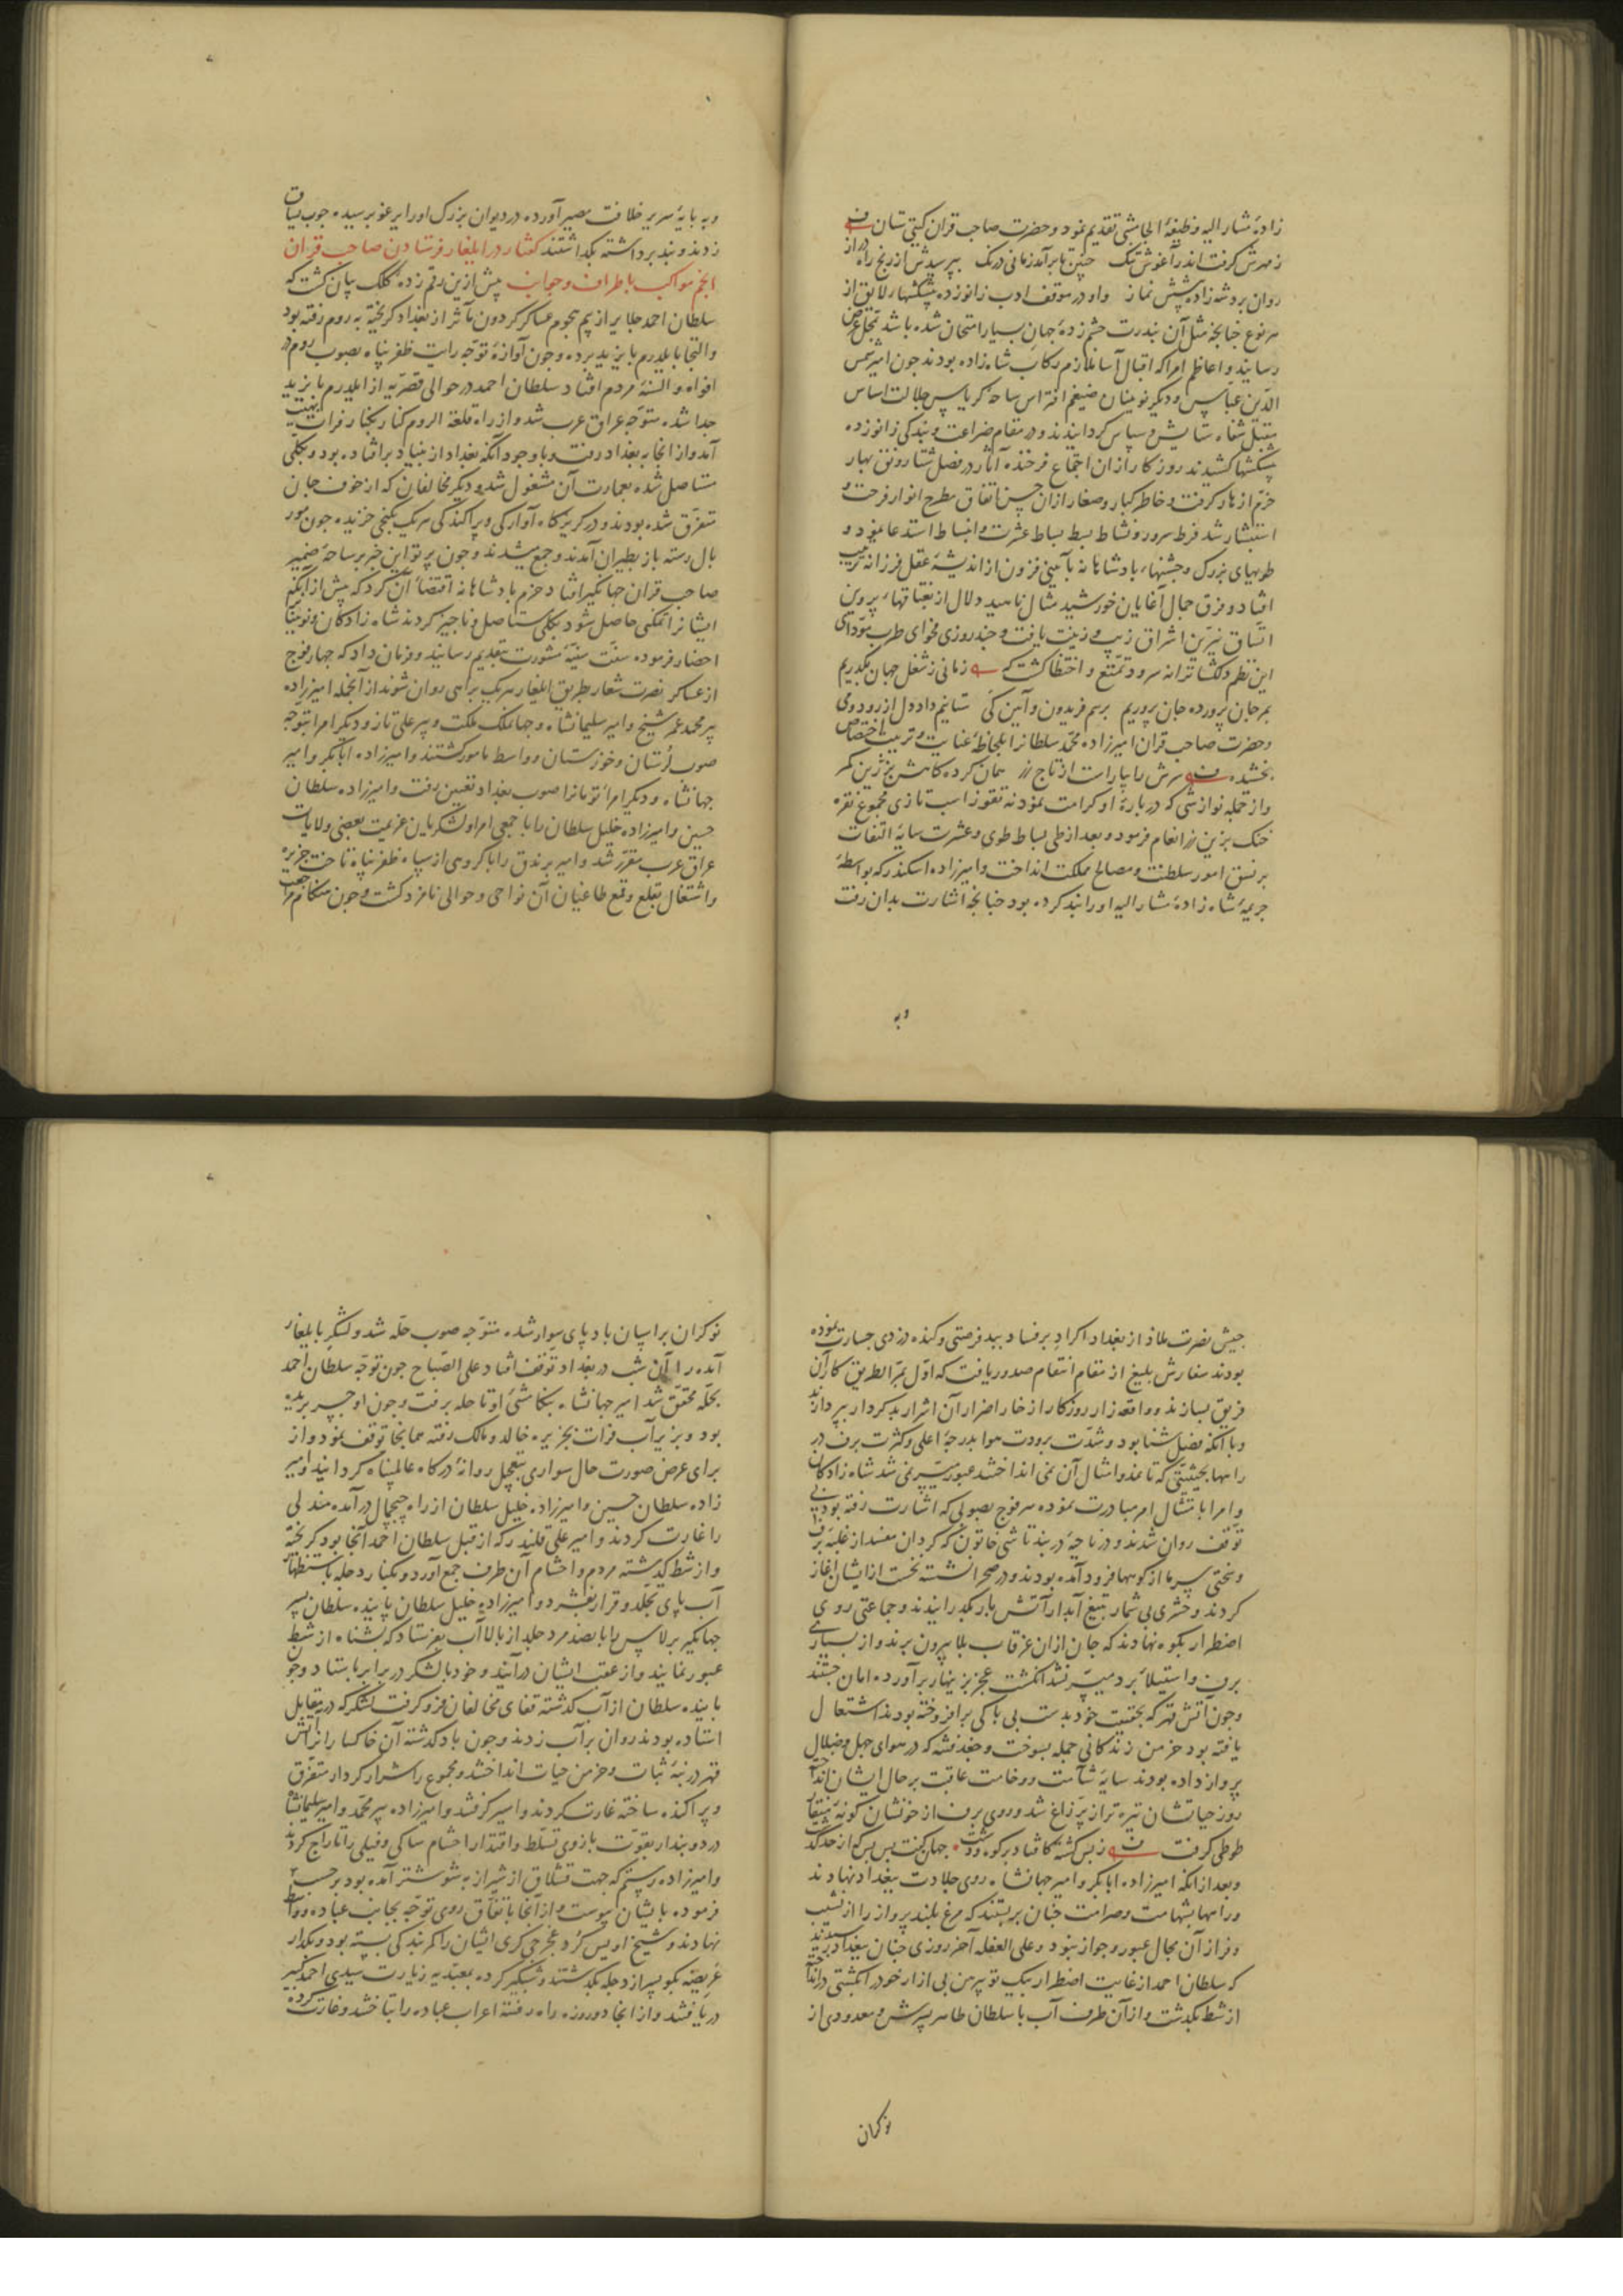 زادهٔ مشار الیه وظیفهٔ الجامشی تقدیم نمود و حضرت صاحب قران کیتی ستان
ز مهرش کرفت اندر آغوش تنک چنین تا برآمد زمانی درنک بپرسیدش از رنج راه دراز
روان بر دشه زاده پیشش نماز و او در موقف ادب زانو زده پیشکشهاء لایق از
هر نوع جنانجه مثل آن بندرت چشم زدهٔ جهان بسیار امتحان شده باشد بمحل عرض
رسانید و اعاظم امرا که اقبال آسا ملازم رکاب شاه زاده بودند جون امیر شمس
الدین عباس و دیکر نوینان ضیغم افتراس ساحهٔ کریاس جلالت اساس
مقبل شفاه ستایش و سپاس کردانیدند و در مقام ضراعت و بندکی زانو زده
پیشکشها کشیدند روزکار از ان اجتماع فرخنده آثار در فصل شتا رونق بهار
خرم ازهار کرفت و خاطر کبار و صغار از ان حسن اتفاق مطرح انوار فرحت و
استبشار شد فرط سرور و نشاط بسط بساط عشرت و انبساط استدعا نمود و
طویهای بزرک و جشنهاء بادشاهانه بآیینی فزون از اندیشهٔ عقل فرزانه ترتیب
افتاد و فرق جمال آغایان خورشید مثال ناهید دلال از بغتاقهاء پروین
اتساق نیرین اشراق زیب و زینت یافت و جند روزی فحوای طرب مؤدای
این نظم دلکشا ترانه سرود تمتع و احتظا کشت که زمانی ز شغل جهان بکذریم
بمر جان پرورده جان پروریم برسم فریدون و آیین کی ستانیم داد دل از رود و می
و حضرت صاحب قران امیرزاده محمد سلطان را بلحاظهٔ عنایت و تربیت اختصاص
بخشیده سرش را بیاراست از تاج زر همان کرده کاهش بزرین کمر
و از جمله نوازشی که در بارهٔ او کرامت نمود نه تقوز اسب تازی مجموع نقره
خنک بزین زر انعام فرمود و بعد از طی بساط طوی و عشرت سایهٔ التفات
بر نسق امور سلطنت و مصالح مملکت انداخت و امیرزاده اسکندر که بواسطهٔ
جریمه شاه زادهٔ مشار الیه او را بند کرده بود جنانجه اشارت بدان رفت
وبه
وبه بایهٔ سریر خلافت مصیر آورده در دیوان بزرک اورا یرغو برسیده جوب یاساق
زدند و بند برداشته بکذاشتند کفتار در ایلغار فرستادن صاحب قران
انجم مواکب باطراف و جوانب پیش ازین رقم زدهٔ کلک بیان کشت که
سلطان احمد جلایر از بیم هجوم عساکر کردون مآثر از بغداد کریخته به روم رفته بود
و التجا بایلدرم بایزید برده و جون آوازهٔ توجه رایت ظفر پناه بصوب روم در
افواه و السنهٔ مردم افتاد سلطان احمد در حوالی قصریه از ایلدرم بایزید
جدا شده متوجه عراق عرب شد و از راه قلعة الروم کنار بکنار فرات بهیت
آمد و از انجا به بغداد رفت و با وجود آنکه بغداد از بنیاد برافتاده بود و بکلی
مستاصل شده بعمارت آن مشغول شد و دیکر مخالفان که از خوف جان
متفرق شده بودند و در کریزکاه آوارکی و پراکندکی هر یک بکنجی خزیده جون مور
بال رسته باز بطیران آمدند و جمع میشدند و جون پرتو این خبر بر ساحهٔ ضمیر
صاحب قران جهانکیر افتاد حزم بادشاهانه اقتضاء آن کرد که پیش از آنکه
ایشانرا تمکنی حاصل شود بکلی مستاصل و ناجیز کردند شاه زادکان و نوینان
احضار فرموده سنت سنیهٔ مشورت بتقدیم رسانید و فرمان داد که جهار فوج
از عساکر نصرت شعار بطریق ایلغار هر یک براهی روان شوند از آنجمله امیرزاده
پیر محمد عمر شیخ و امیر سلیمانشاه و جهانملک ملکت و پیر علی تاز و دیکر امرا بتوجه
صوب لرستان و خوزستان و واسط مامور کشتند و امیرزاده ابابکر و امیر
جهانشاه و دیکر امراء تومانرا صوب بغداد تعیین رفت و امیرزاده سلطان
حسین و امیرزاده خلیل سلطان را با جمعی امرا و لشکریان عزیمت بعضی ولایات
عراق عرب مقرر شد و امیر برندق را با کروهی از سپاه ظفر پناه تاخت جزیره
و اشتغال بقلع و قمع طاغیان آن نواحی و حوالی نامزد کشت و جون هنکام مراجعت
جیش نصرت ملاذ از بغداد اکراد بر فساد بید فرصتی و کنده دزدی جسارت نموده
بودند سفارش بلیغ از مقام انتقام صدور یافت که اول بمر الطریق کار آن
فریق بسازند و واقعه زار روزکار از خار اضرار آن اشرار بد کردار بپردازند
و با آنکه فصل شتا بود و شدت برودت هوا بدرجهٔ اعلی و کثرت برف در
راهها بحیثیتی که تا نمد و امثال آن نمی انداختند عبور میسر نمی شد شاه زادکان
و امرا بامتثال امر مبادرت نموده هر فوج بصوبی که اشارت رفته بود بی
توقف روان شدند و در ناحیهٔ دربند تاشی خاتون که کردان مفسد از غلبهٔ برف
و سختی سرما از کوهها فرود آمده بودند و در صحرا نشسته نخست از ایشان آغاز
کردند و حشری بی شمار بتیغ آبدار آتش بار بکذرانیدند و جماعتی روی
اضطرار بکوه نهادند که جان از ان غرقاب بلا بیرون برند و از بسیاری
برف و استیلاء برد میسر نشد انکشت عجز بزینهار برآورده امان جستند
و جون آتش قهر که بحقیقت خود بدست بی باکی برافروخته بودند اشتعال
یافته بود خرمن زندکانی جمله بسوخت و جغد فتنه که در هوای جهل و ضلال
پرواز داده بودند سایهٔ شآمت و وخامت عاقبت بر حال ایشان انداخت
روز حیاتشان تیره تر از پر زاغ شد و روی برف از خونشان کونهٔ منقار
طوطی کرفت ز بس کشته کافتاد بر کوه و دشت جهان کفت بس بس که از حد کذشت
و بعد از آنکه امیرزاده ابابکر و امیر جهانشاه روی جلادت ببغداد نهادند
و راهها بشهامت و صرامت جنان بربستند که مرغ بلند پرواز را از نشیب
و فراز آن مجال عبور و جواز نبود و علی الغفله آخر روزی جنان ببغداد رسیدند
که سلطان احمد از غایت اضطرار بیک تو پیرهن بی ازار خود را در کشتی انداخت
از شط بکذشت و از آن طرف آب با سلطان طاهر پسرش و معدودی از
نوکران
نوکران بر اسپان باد پای سوار شده متوجه صوب حله شد و لشکر بایلغار
آمده را آن شب در بغداد توقف افتاد علی الصباح جون توجه سلطان احمد
بحله محقق شد امیر جهانشاه بتکامشیٔ او تا حله برفت و جون او جسر بریده
بود و بزیر آب فرات بجزیره خالد و مالک رفته همانجا توقف نمود و از
برای عرض صورت حال سواری بتعجیل روانهٔ درکاه عالمپناه کردانید و امیر
زاده سلطان حسین و امیرزاده خلیل سلطان از راه جمجال درآمده مندلی
را غارت کردند و امیر علی قلندر که از قبل سلطان احمد آنجا بود کریخته
و از شط کذشته مردم و احشام آن طرف جمع آورد و بکنار دجله باستظهار
آب پای تجلد و قرار بفشرد و امیرزاده خلیل سلطان پاینده سلطان پسر
جهانکیر برلاس را با بصد مرد جلد از بالا آب بفرستاد که بشناه از شط
عبور نمایند و از عقب ایشان درآیند و خود با لشکر در برابر باستاد و جون
باینده سلطان از آب کذشته قفای مخالفان فرو کرفت لشکر که در مقابل
استاده بودند روان بر آب زدند و جون باد کذشته آن خاکسار را از آتش
قهر در بنهٔ ثبات و خرمن حیات انداختند و مجموع را شرار کردار متفرق
و پراکنده ساخته غارت کردند و اسیر کرفتند و امیرزاده پیر محمد و امیر سلیمانشاه
در دو بندار بقوت بازوی تسلط و اقتدار احشام ساکی و فیلی را تاراج کردند
و امیرزاده رستم که جهت قشلاق از شیراز به شوشتر آمده بود بر حسب
فرموده بایشان پیوست و از آنجا باتفاق روی توجه بجانب عباده و واسط
نهادند و شیخ اویس کرد غجرجی کری ایشان را کمر بندکی بسته بود و بکذار
عریضه بکوپر از دجله بکذشتند و شبکیر کرده بمعبدیه زیارت سیدی احمد کبیر
دریافتند و از انجا دو روزه راه رفته اعراب عباده را بتاختند و غارت کرده